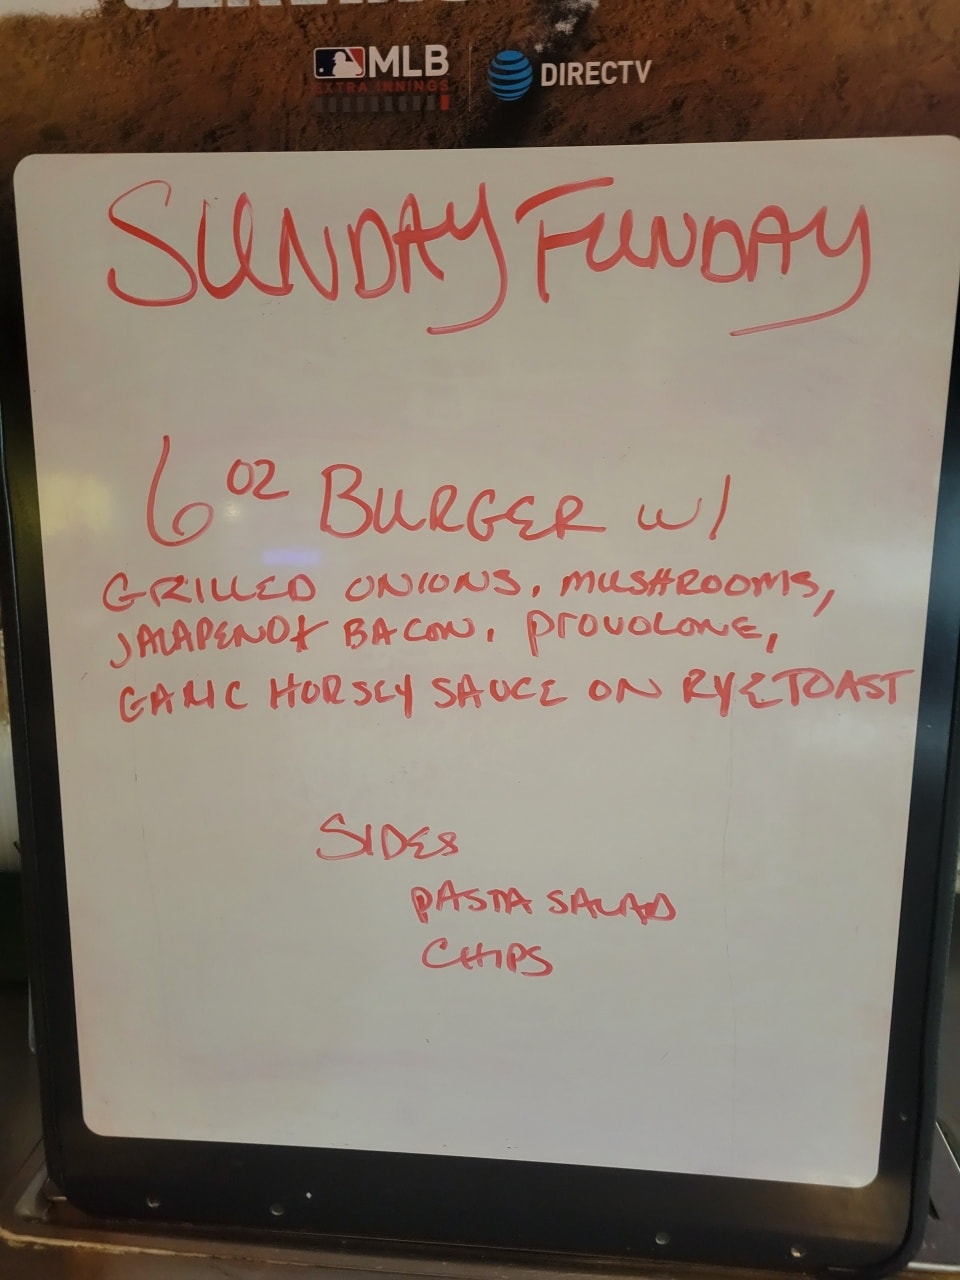 MLB
EXTRA INNINGS
DIRECTV
SUNDAY FUNDAY
6 OZ BURGER W/
GRILLED ONIONS, MUSHROOMS,
JALAPENO & BACON, PROVOLONE,
GARLIC HORSEY SAUCE ON RYE TOAST
SIDES
PASTA SALAD
CHIPS